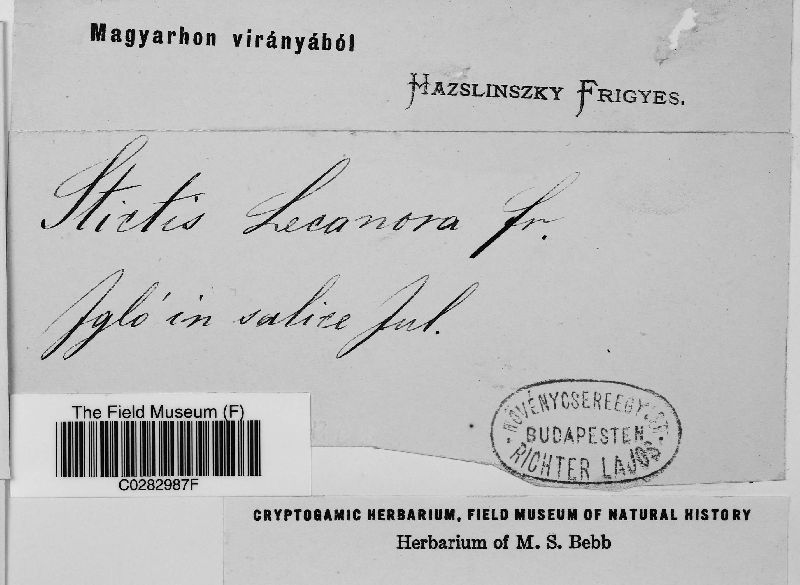 Magyarhon virányából
HAZSLINSZKY FRIGYES.
Stictis Lecanora Fr.
Igló in salice Jul.
The Field Museum (F)
C0282987F
NÖVÉNYCSEREEGYLET
BUDAPESTEN
RICHTER LAJOS
CRYPTOGAMIC HERBARIUM, FIELD MUSEUM OF NATURAL HISTORY
Herbarium of M. S. Bebb